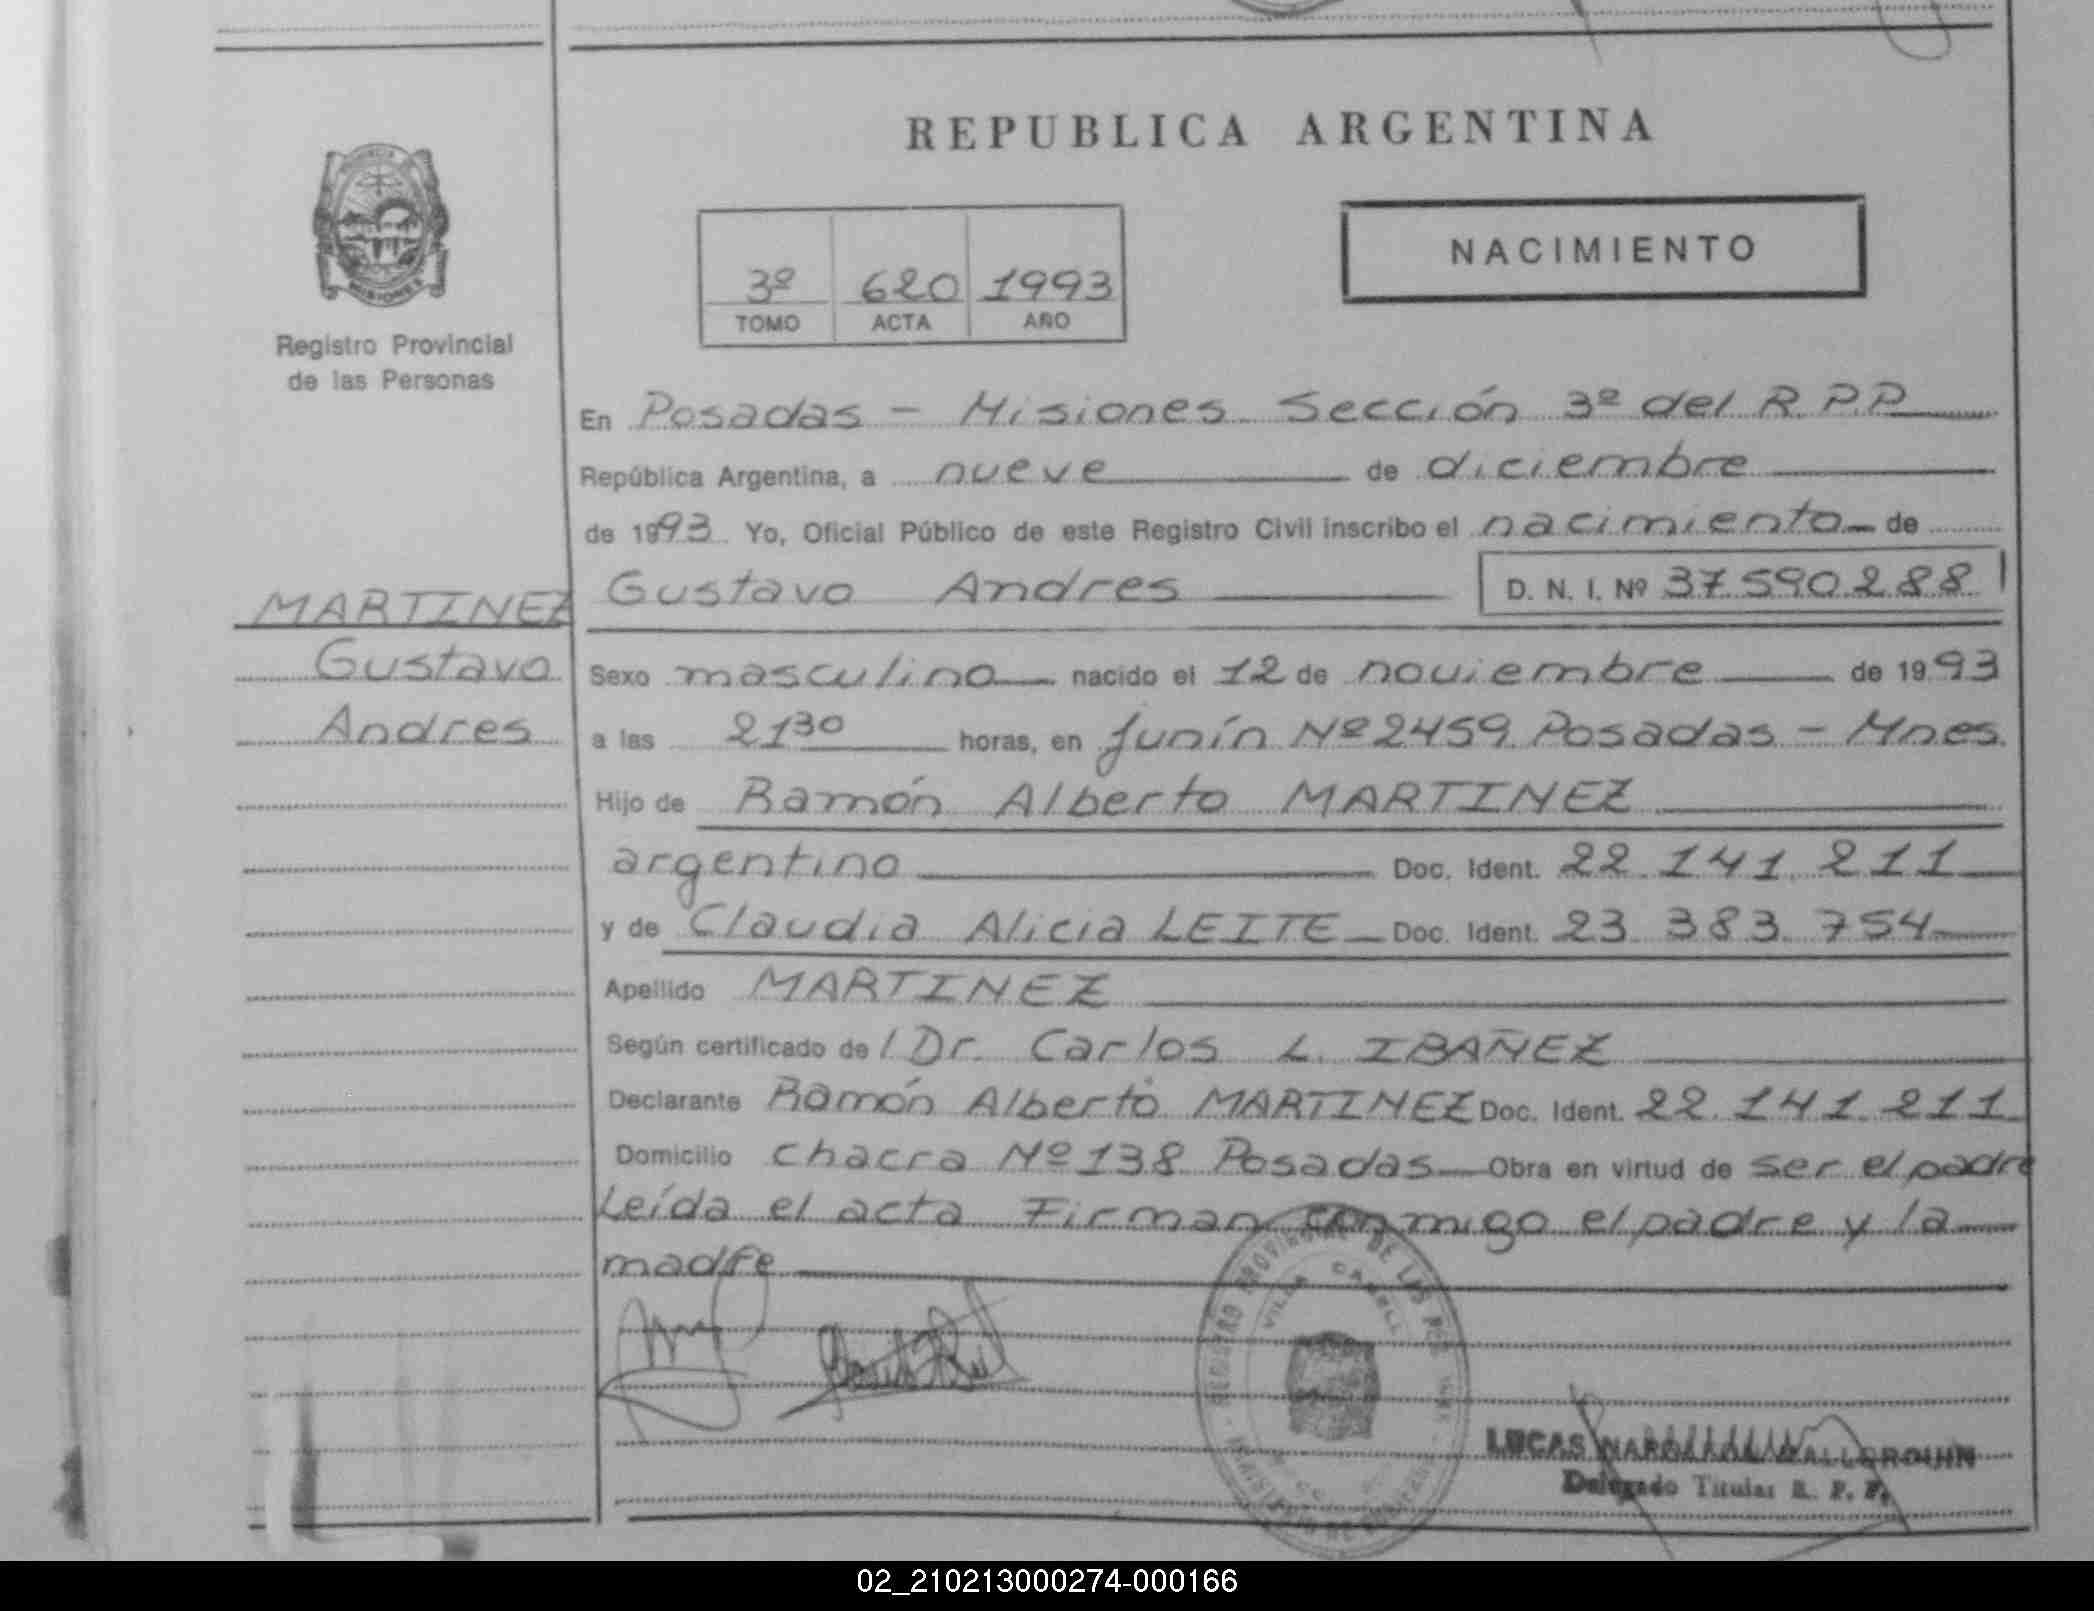 REPUBLICA ARGENTINA
PROVINCIA
MISIONES
Registro Provincial
de las Personas
3º 620 1993
TOMO ACTA AÑO
NACIMIENTO
En Posadas - Misiones Sección 3º del R.P.P
República Argentina, a nueve de diciembre
de 1993 Yo, Oficial Público de este Registro Civil inscribo el nacimiento de
Gustavo Andres D. N. I. Nº 37.590.288
MARTINEZ
Gustavo
Andres
Sexo masculino nacido el 12 de noviembre de 1993
a las 21³⁰ horas, en Junín Nº 2459 Posadas - Mnes.
Hijo de Ramón Alberto MARTINEZ
argentino Doc. Ident. 22.141.211
y de Claudia Alicia LEITE Doc. Ident. 23.383.754
Apellido MARTINEZ
Según certificado de / Dr. Carlos L. IBAÑEZ
Declarante Ramón Alberto MARTINEZ Doc. Ident. 22.141.211
Domicilio Chacra Nº 138 Posadas Obra en virtud de ser el padre
Leída el acta Firman conmigo el padre y la
madre
REGISTRO PROVINCIAL DE LAS
VILLA CABELL
LUCAS
Delegado Titular R. P. P.
02_210213000274-000166